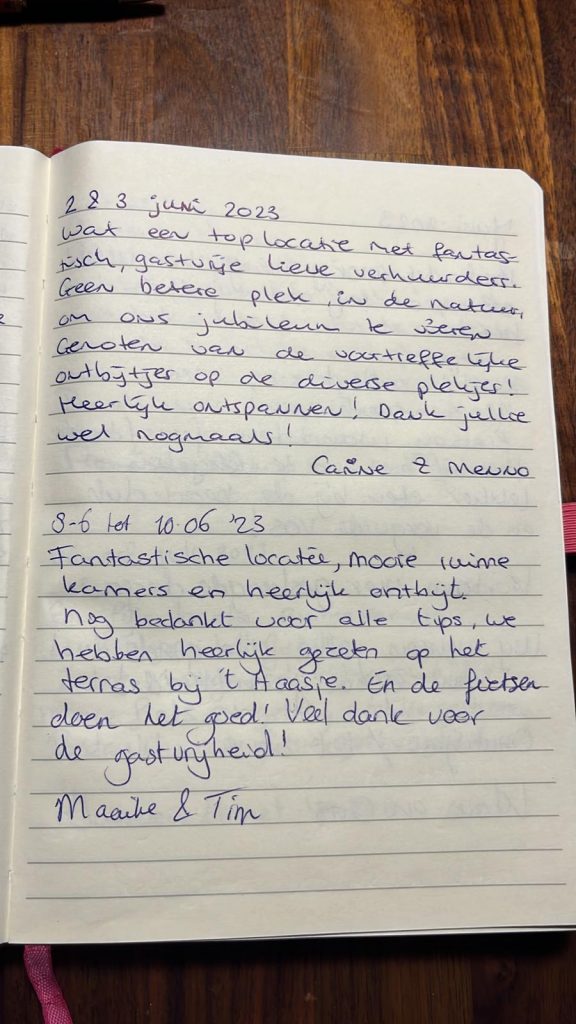 2 & 3 juni 2023
Wat een top locatie met fantas-
tisch, gastvrije lieve verhuurders.
Geen betere plek, in de natuur,
om ons jubileum te vieren
Genoten van de voortreffelijke
ontbijtjes op de diverse plekjes!
Heerlijk ontspannen! Dank jullie
wel nogmaals!
Carine & Menno
8-6 tot 10.06 '23
Fantastische locatie, mooie ruime
kamers en heerlijk ontbijt.
Nog bedankt voor alle tips, we
hebben heerlijk gezeten op het
terras bij 't Haasje. En de fietsen
doen het goed! Veel dank voor
de gastvrijheid!
Maaike & Tim